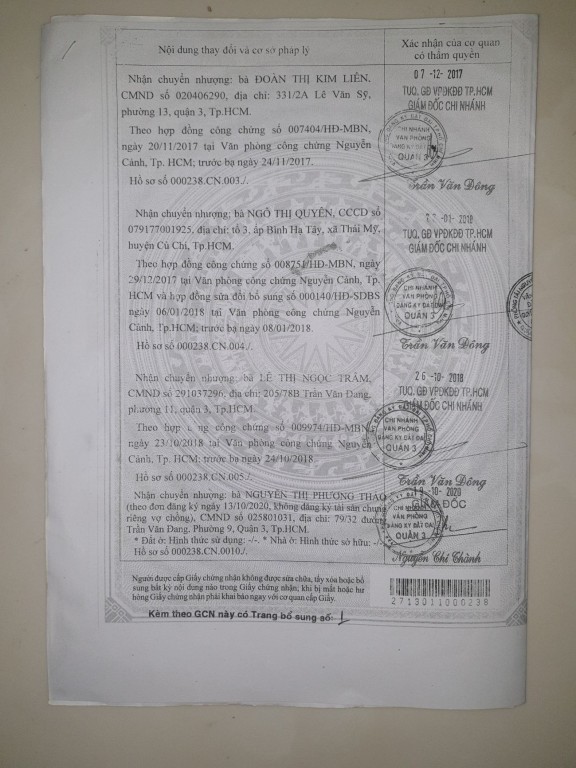 Nội dung thay đổi và cơ sở pháp lý
Xác nhận của cơ quan
có thẩm quyền
Nhận chuyển nhượng: bà ĐOÀN THỊ KIM LIÊN,
CMND số 020406290, địa chỉ: 331/2A Lê Văn Sỹ,
phường 13, quận 3, Tp.HCM.
Theo hợp đồng công chứng số 007404/HĐ-MBN,
ngày 20/11/2017 tại Văn phòng công chứng Nguyễn
Cảnh, Tp. HCM; trước bạ ngày 24/11/2017.
Hồ sơ số 000238.CN.003./.
07 -12- 2017
TUQ. GĐ VPĐKĐĐ TP.HCM
GIÁM ĐỐC CHI NHÁNH
CHI NHÁNH
VĂN PHÒNG
ĐĂNG KÝ ĐẤT ĐAI
QUẬN 3
Trần Văn Đông
Nhận chuyển nhượng: bà NGÔ THỊ QUYÊN, CCCD số
079177001925, địa chỉ: tổ 3, ấp Bình Hạ Tây, xã Thái Mỹ,
huyện Củ Chi, Tp.HCM.
Theo hợp đồng công chứng số 008751/HĐ-MBN, ngày
29/12/2017 tại Văn phòng công chứng Nguyễn Cảnh, Tp.
HCM và hợp đồng sửa đổi bổ sung số 000140/HĐ-SDBS
ngày 06/01/2018 tại Văn phòng công chứng Nguyễn
Cảnh, Tp.HCM; trước bạ ngày 08/01/2018.
Hồ sơ số 000238.CN.004./.
-01- 2018
TUQ. GĐ VPĐKĐĐ TP.HCM
GIÁM ĐỐC CHI NHÁNH
CHI NHÁNH
VĂN PHÒNG
ĐĂNG KÝ ĐẤT ĐAI
QUẬN 3
Trần Văn Đông
Nhận chuyển nhượng: bà LÊ THỊ NGỌC TRÂM,
CMND số 291037296, địa chỉ: 205/78B Trần Văn Đang,
phường 11, quận 3, Tp.HCM.
Theo hợp đồng công chứng số 009974/HĐ-MBN,
ngày 23/10/2018 tại Văn phòng công chứng Nguyễn
Cảnh, Tp. HCM; trước bạ ngày 24/10/2018.
Hồ sơ số 000238.CN.005./.
26 -10- 2018
TUQ. GĐ VPĐKĐĐ TP.HCM
GIÁM ĐỐC CHI NHÁNH
CHI NHÁNH
VĂN PHÒNG
ĐĂNG KÝ ĐẤT ĐAI
QUẬN 3
Trần Văn Đông
Nhận chuyển nhượng: bà NGUYỄN THỊ PHƯƠNG THẢO
(theo đơn đăng ký ngày 13/10/2020, không đăng ký tài sản chung
riêng vợ chồng), CMND số 025801031, địa chỉ: 79/32 đường
Trần Văn Đang, Phường 9, Quận 3, Tp.HCM.
* Đất ở: Hình thức sử dụng: -/-. * Nhà ở: Hình thức sở hữu: -/-
Hồ sơ số 000238.CN.0010./.
-10- 2020
GIÁM ĐỐC
CHI NHÁNH
VĂN PHÒNG
ĐĂNG KÝ ĐẤT ĐAI
QUẬN 3
Nguyễn Chí Thành
Người được cấp Giấy chứng nhận không được sửa chữa, tẩy xóa hoặc bổ
sung bất kỳ nội dung nào trong Giấy chứng nhận; khi bị mất hoặc hư
hỏng Giấy chứng nhận phải khai báo ngay với cơ quan cấp Giấy.
2713011000238
Kèm theo GCN này có Trang bổ sung số: 1